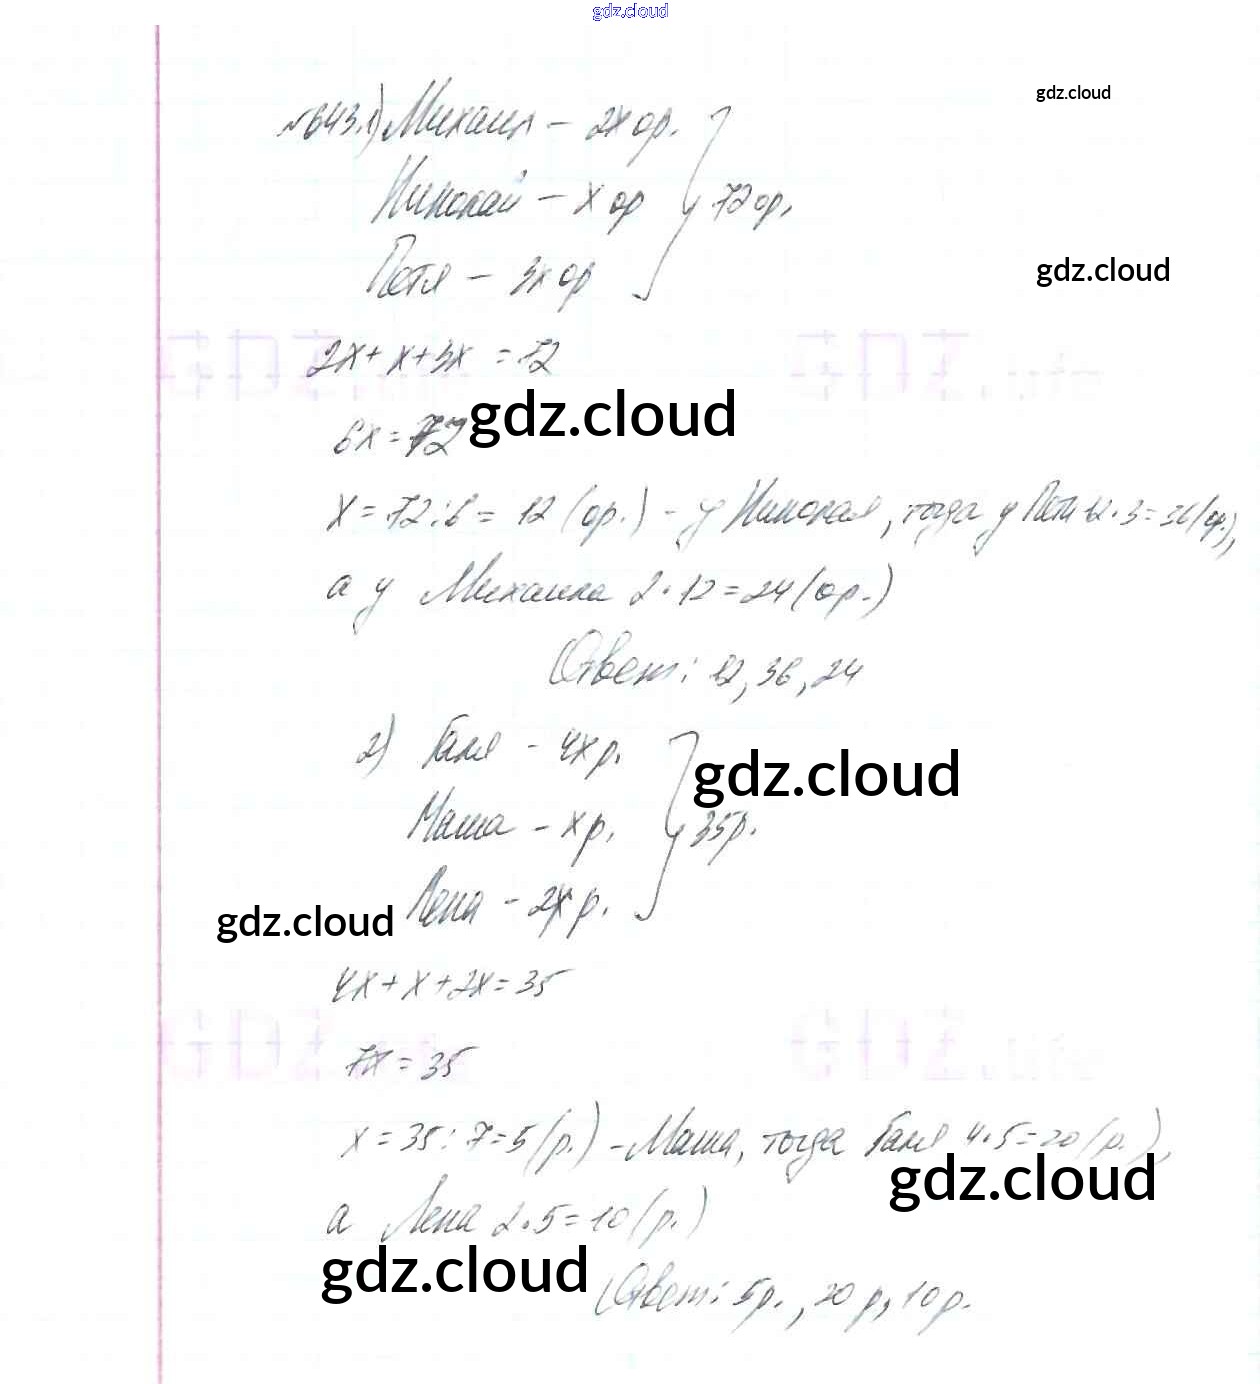 gdz.cloud
gdz.cloud
№643.1) Михаил – 2х ор.
Николай – х ор
72 ор.
Петя – 3х ор
gdz.cloud
2х + х + 3х = 72
6х = 72
gdz.cloud
х = 72 : 6 = 12 (ор.) – у Николая, тогда у Пети 12 · 3 = 36 (ор.),
а у Михаила 2 · 12 = 24 (ор.)
Ответ: 12, 36, 24
2) Галя – 4х р.
gdz.cloud
Маша – х р.
35 р.
Лена – 2х р.
gdz.cloud
4х + х + 2х = 35
7х = 35
х = 35 : 7 = 5 (р.) – Маша, тогда Галя 4 · 5 = 20 (р.),
gdz.cloud
а Лена 2 · 5 = 10 (р.)
gdz.cloud
Ответ: 5 р., 20 р, 10 р.